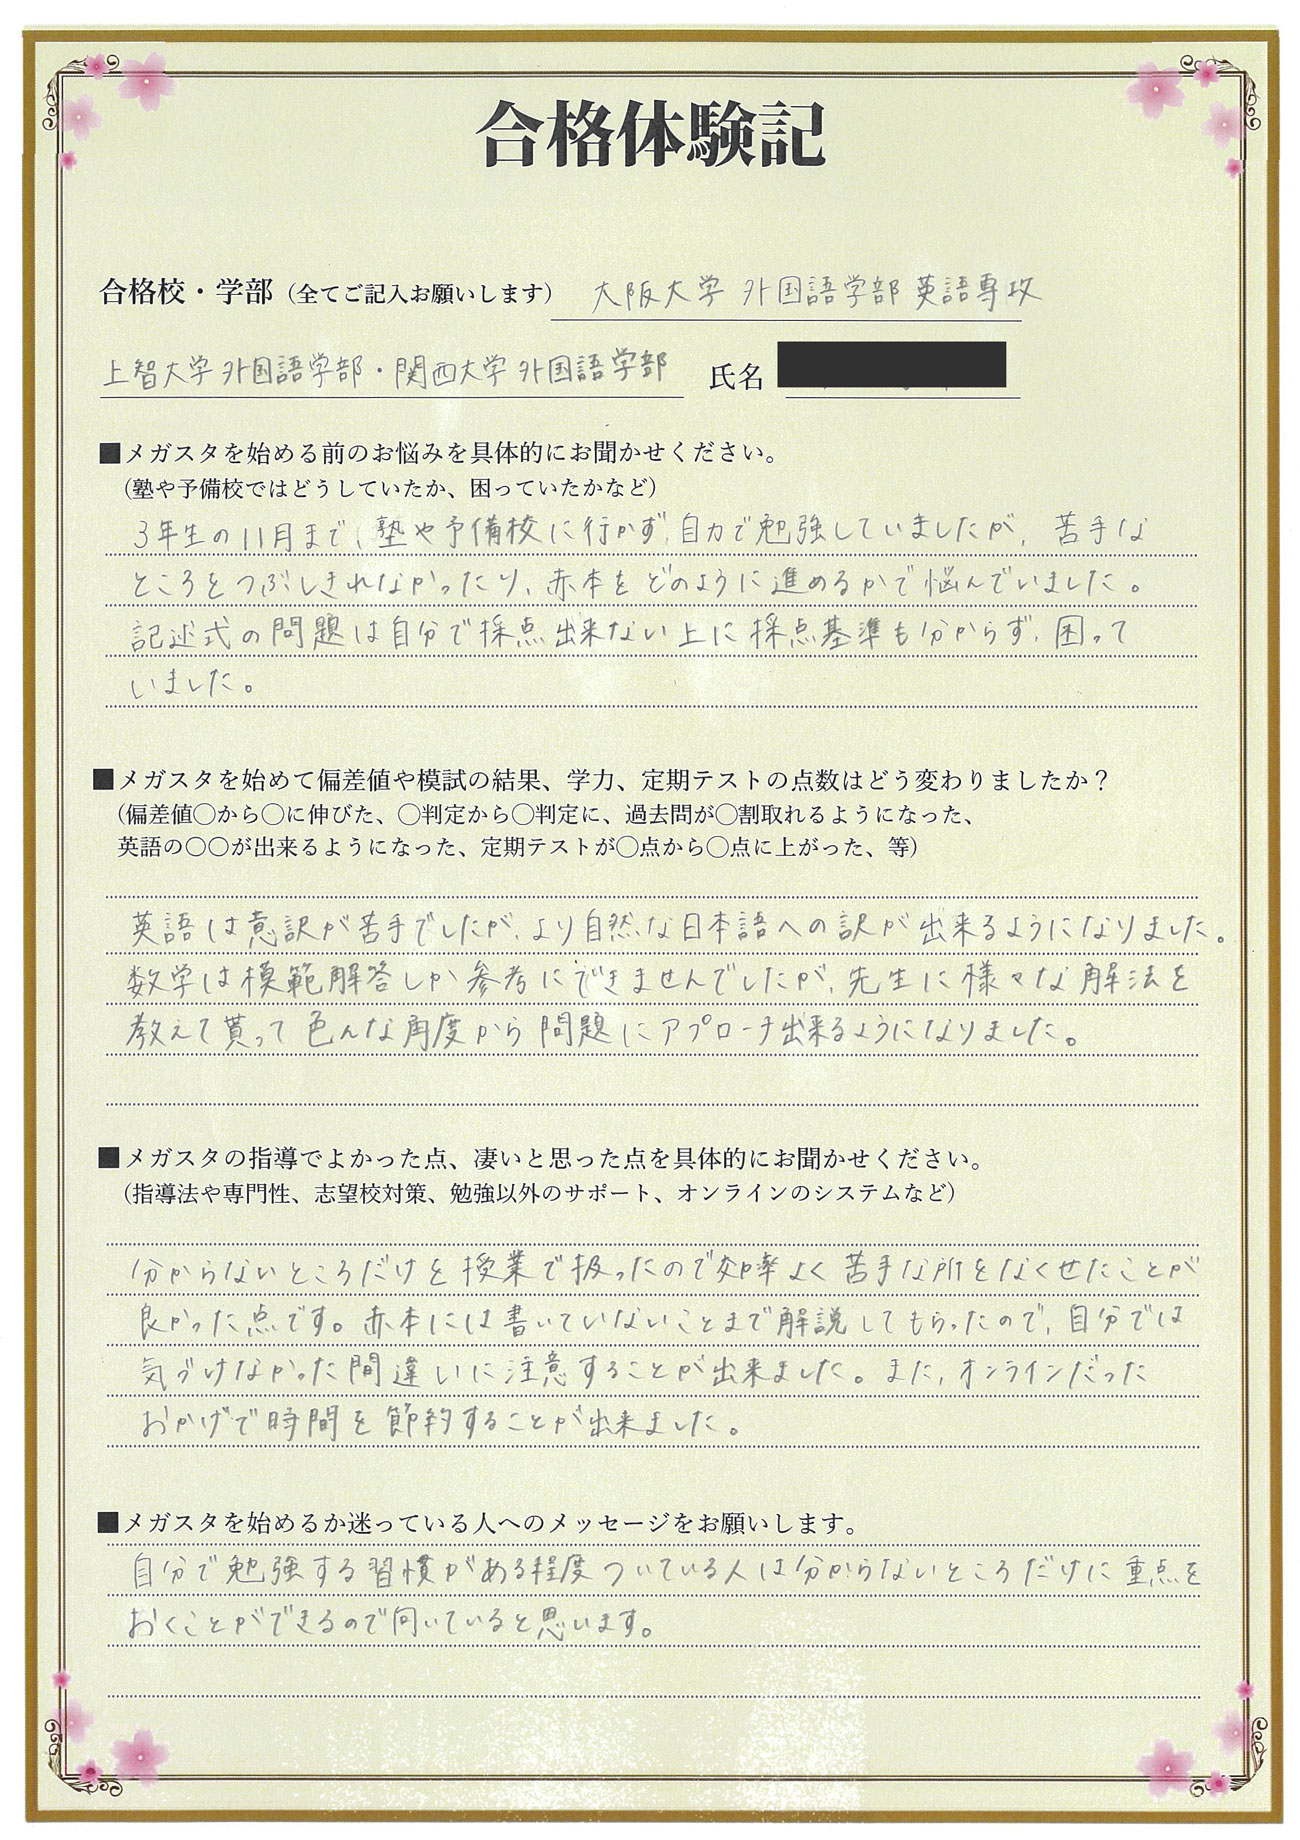 合格体験記
合格校・学部（全てご記入お願いします） 大阪大学 外国語学部 英語専攻
上智大学 外国語学部・関西大学 外国語学部 氏名
■メガスタを始める前のお悩みを具体的にお聞かせください。
（塾や予備校ではどうしていたか、困っていたかなど）
3年生の11月まで、塾や予備校に行かず、自力で勉強していましたが、苦手な
ところをつぶしきれなかったり、赤本をどのように進めるかで悩んでいました。
記述式の問題は自分で採点出来ない上に採点基準も分からず、困って
いました。
■メガスタを始めて偏差値や模試の結果、学力、定期テストの点数はどう変わりましたか？
（偏差値〇から〇に伸びた、〇判定から〇判定に、過去問が〇割取れるようになった、
英語の〇〇が出来るようになった、定期テストが〇点から〇点に上がった、等）
英語は意訳が苦手でしたが、より自然な日本語への訳が出来るようになりました。
数学は模範解答しか参考にできませんでしたが、先生に様々な解法を
教えて貰って色んな角度から問題にアプローチ出来るようになりました。
■メガスタの指導でよかった点、凄いと思った点を具体的にお聞かせください。
（指導法や専門性、志望校対策、勉強以外のサポート、オンラインのシステムなど）
分からないところだけを授業で扱ったので効率よく苦手な所をなくせたことが
良かった点です。赤本には書いていないことまで解説してもらったので、自分では
気づけなかった間違いに注意することが出来ました。また、オンラインだった
おかげで時間を節約することが出来ました。
■メガスタを始めるか迷っている人へのメッセージをお願いします。
自分で勉強する習慣がある程度ついている人は分からないところだけに重点を
おくことができるので向いていると思います。